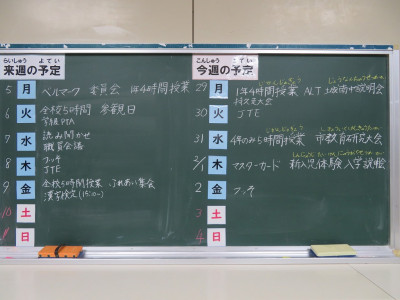 らいしゅう よてい
来週の予定
5 月 ベルマーク委員会 1年4時間授業
6 火 全校5時間 参観日
学級PTA
7 水 読み聞かせ
職員会議
8 木 フッ素
JTE
9 金 全校5時間授業 ふれあい集会
漢字検定(15:00~)
10 土
11 日
こんしゅう よてい
今週の予定
29 月 1年4時間授業 ALT
持久走大会
30 火 JTE
31 水 4年のみ5時間授業 市教育研究大会
2/1 木 マスターカード 新入児体験入学
2 金 フッ素
3 土
4 日